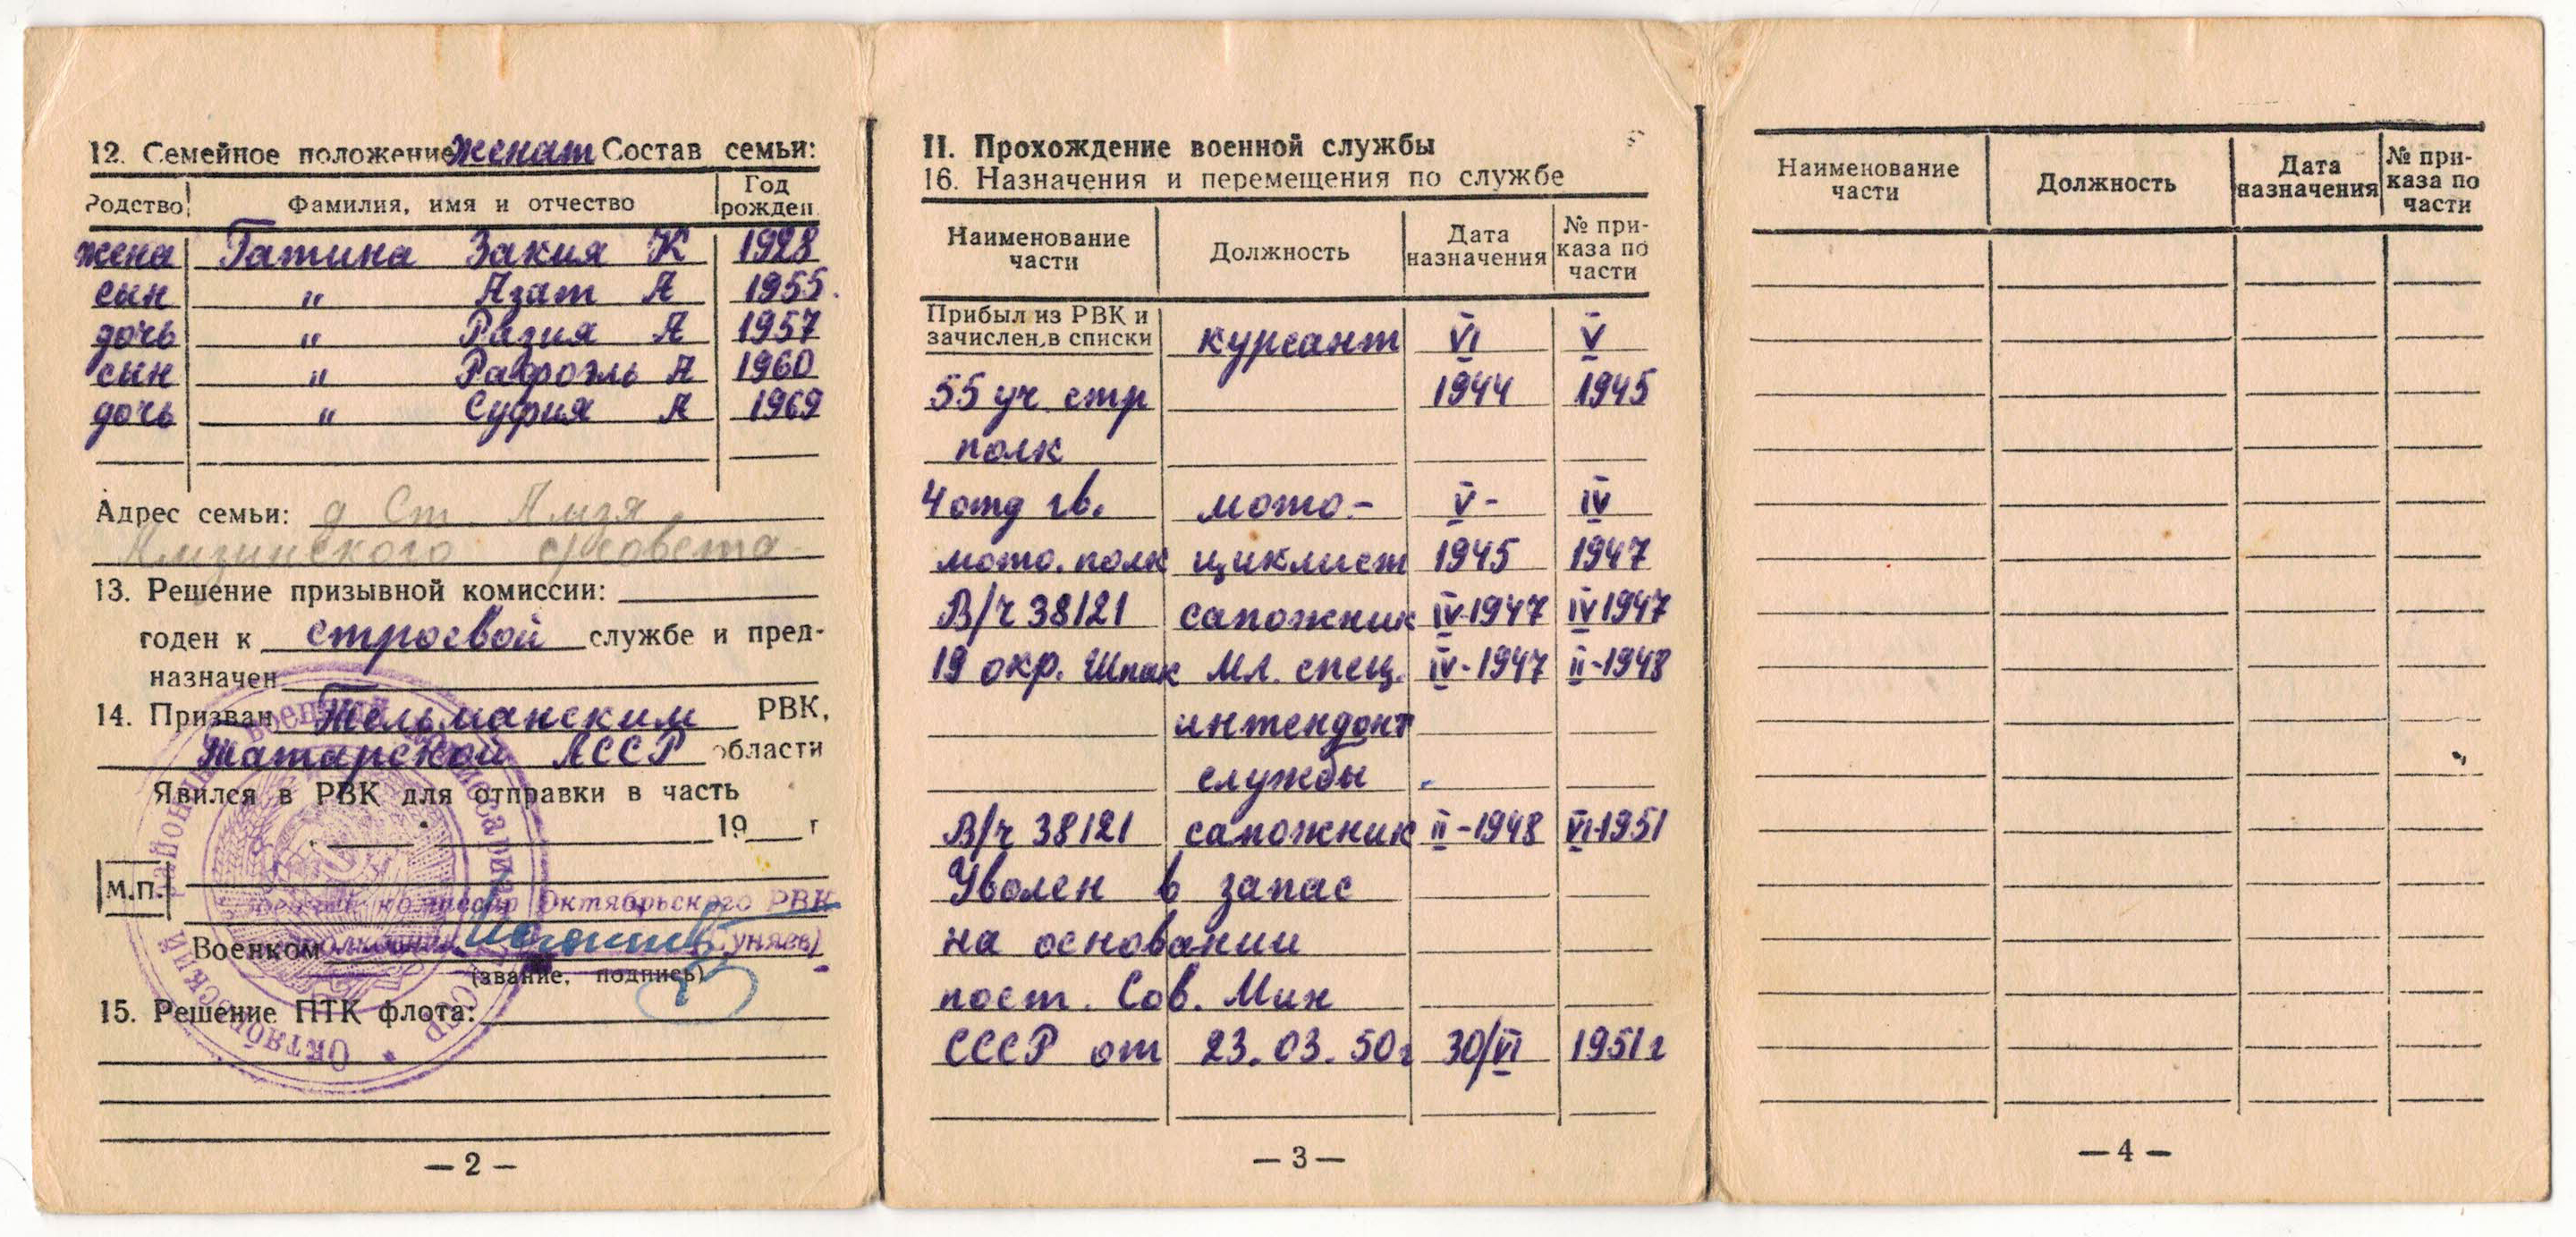 12. Семейное положение женат Состав семьи:
Родство Фамилия, имя и отчество Год рожден.
жена Гатина Закия К 1928
сын " Азат А 1955.
дочь " Разия А 1957
сын " Рафоэль А 1960
дочь " Суфия А 1969
Адрес семьи: д Ст. Амзя
Амзинского с/совета
13. Решение призывной комиссии:
годен к строевой службе и пред-
назначен
14. Призван Тельманским РВК,
Татарской АССР области
Явился в РВК для отправки в часть
19 г
М.П.
Военный комиссар Октябрьского РВК
Военком подполковник уняев)
(звание, подпись)
15. Решение ПТК флота:
Октябрьский районный военный комиссариат ССР
— 2 —
II. Прохождение военной службы
16. Назначения и перемещения по службе
Наименование части Должность Дата назначения № при-каза по части
Прибыл из РВК и
зачислен в списки курсант VI V
55 уч. стр 1944 1945
полк
4 отд гв. мото- V- IV
мото. полк циклист 1945 1947
В/ч 38121 сапожник IV-1947 IV 1947
19 окр. Шпак Мл. спец. IV-1947 II-1948
интендант
службы
В/ч 38121 сапожник II-1948 VI-1951
Уволен в запас
на основании
пост. Сов. Мин
СССР от 23.03.50г 30/VI 1951г
— 3 —
Наименование части Должность Дата назначения № при-каза по части
— 4 —